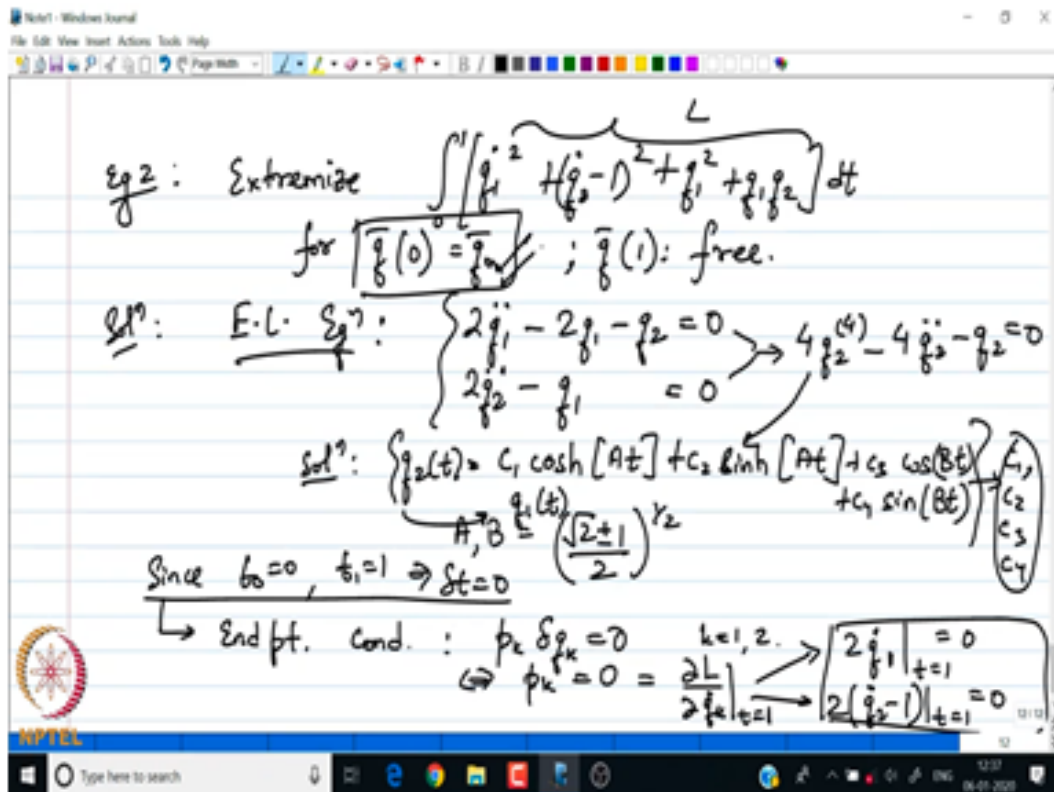 Note1 - Windows Journal
File Edit View Insert Actions Tools Help
Page Width
B I
L
Eg 2 : Extremize ∫₀¹ [q̇₁² + (q̇₂-1)² + q₁² + q₁q₂] dt
for q̄(0) = q̄₀ ; q̄(1): free.
Solⁿ: E.L. Eqⁿ: { 2q̈₁ - 2q₁ - q₂ = 0
2q̈₂ - q₁ = 0 → 4q₂⁽⁴⁾ - 4q̈₂ - q₂ = 0
solⁿ: { q₂(t) = c₁ cosh [At] + c₂ sinh [At] + c₃ cos(Bt) + c₄ sin(Bt) } → c₁, c₂ c₃ c₄
q₁(t)
A, B = ((√2±1)/2)^{1/2}
Since t₀=0, t₁=1 ⇒ δt=0
↳ End pt. Cond. : pₖ δqₖ = 0 k=1, 2.
⇔ pₖ = 0 = ∂L/∂q̇ₖ |t=1
2q̇₁|t=1 = 0
2(q̇₂-1)|t=1 = 0
12/12
NPTEL
12
Type here to search
ENG
12:37
06-01-2020